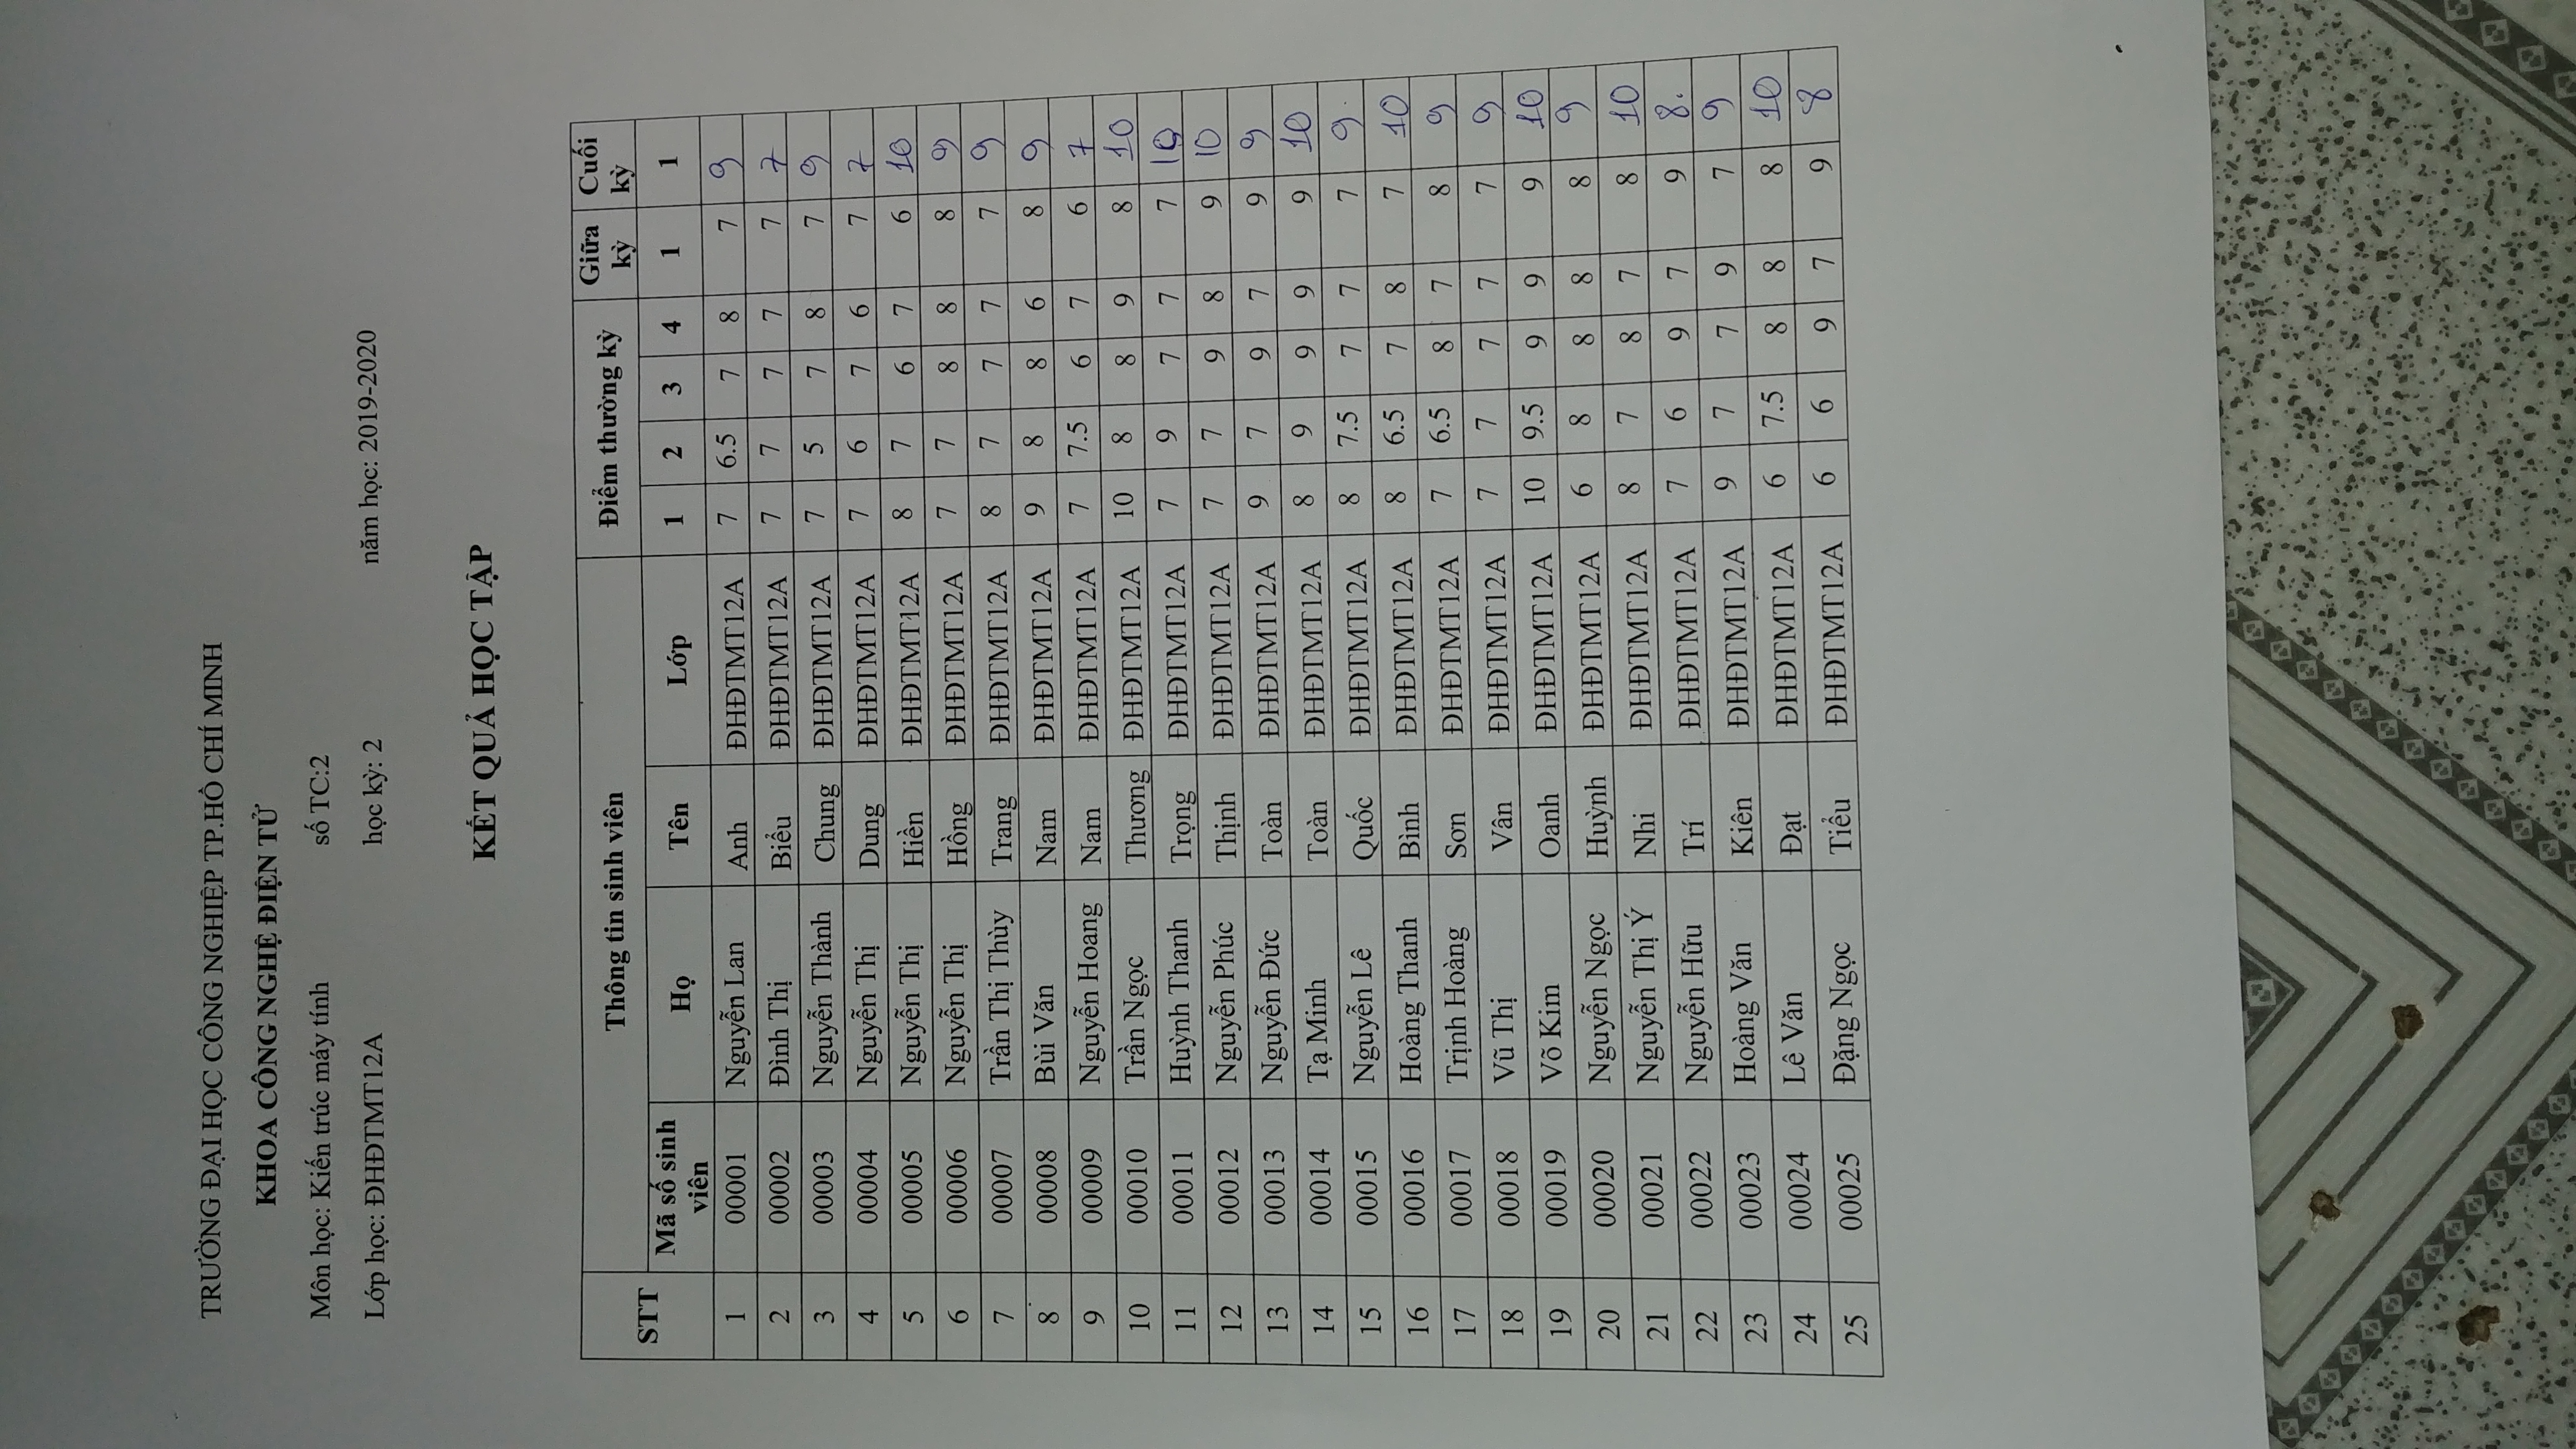 TRƯỜNG ĐẠI HỌC CÔNG NGHIỆP TP.HỒ CHÍ MINH
KHOA CÔNG NGHỆ ĐIỆN TỬ
Môn học: Kiến trúc máy tính số TC:2
Lớp học: ĐHĐTMT12A học kỳ: 2 năm học: 2019-2020
KẾT QUẢ HỌC TẬP
STT Thông tin sinh viên Điểm thường kỳ Giữa kỳ Cuối kỳ
Mã số sinh viên Họ Tên Lớp 1 2 3 4 1 1
1 00001 Nguyễn Lan Anh ĐHĐTMT12A 7 6.5 7 8 7 9
2 00002 Đình Thị Biểu ĐHĐTMT12A 7 7 7 7 7 7
3 00003 Nguyễn Thành Chung ĐHĐTMT12A 7 5 7 8 7 9
4 00004 Nguyễn Thị Dung ĐHĐTMT12A 7 6 7 6 7 7
5 00005 Nguyễn Thị Hiền ĐHĐTMT12A 8 7 6 7 6 10
6 00006 Nguyễn Thị Hồng ĐHĐTMT12A 7 7 8 8 8 9
7 00007 Trần Thị Thùy Trang ĐHĐTMT12A 8 7 7 7 7 9
8 00008 Bùi Văn Nam ĐHĐTMT12A 9 8 8 6 8 9
9 00009 Nguyễn Hoang Nam ĐHĐTMT12A 7 7.5 6 7 6 7
10 00010 Trần Ngọc Thương ĐHĐTMT12A 10 8 8 9 8 10
11 00011 Huỳnh Thanh Trọng ĐHĐTMT12A 7 9 7 7 7 10
12 00012 Nguyễn Phúc Thịnh ĐHĐTMT12A 7 7 9 8 9 10
13 00013 Nguyễn Đức Toàn ĐHĐTMT12A 9 7 9 7 9 9
14 00014 Tạ Minh Toàn ĐHĐTMT12A 8 9 9 9 9 10
15 00015 Nguyễn Lê Quốc ĐHĐTMT12A 8 7.5 7 7 7 9.
16 00016 Hoàng Thanh Bình ĐHĐTMT12A 8 6.5 7 8 7 10
17 00017 Trịnh Hoàng Sơn ĐHĐTMT12A 7 6.5 8 7 8 9
18 00018 Vũ Thị Vân ĐHĐTMT12A 7 7 7 7 7 9
19 00019 Võ Kim Oanh ĐHĐTMT12A 10 9.5 9 9 9 10
20 00020 Nguyễn Ngọc Huỳnh ĐHĐTMT12A 6 8 8 8 8 9
21 00021 Nguyễn Thị Ý Nhi ĐHĐTMT12A 8 7 8 7 8 10
22 00022 Nguyễn Hữu Trí ĐHĐTMT12A 7 6 9 7 9 8.
23 00023 Hoàng Văn Kiên ĐHĐTMT12A 9 7 7 9 7 9
24 00024 Lê Văn Đạt ĐHĐTMT12A 6 7.5 8 8 8 10
25 00025 Đặng Ngọc Tiểu ĐHĐTMT12A 6 6 9 7 9 8